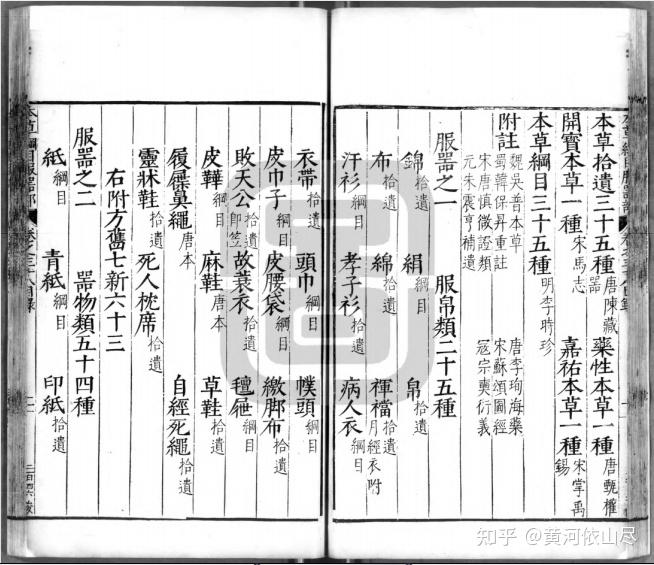 本草拾遺三十五種 唐陳藏器 藥性本草一種 唐甄權
開寶本草一種 宋馬志 嘉祐本草一種 宋掌禹錫
本草綱目三十五種 明李時珍
附註 魏吳普本草 唐李珣海藥
蜀韓保昇重註 宋蘇頌圖經
宋唐慎微證類 寇宗奭衍義
元朱震亨補遺
服器之一 服帛類二十五種
錦拾遺 絹綱目 帛拾遺
布拾遺 綿拾遺 褌襠拾遺月經衣附
汗衫拾遺 孝子衫拾遺 病人衣綱目
衣帶拾遺 頭巾綱目 幞頭綱目
皮巾子綱目 皮腰袋綱目 繳脚布拾遺
敗天公拾遺即笠 故蓑衣拾遺 氊屜綱目
皮鞾綱目 麻鞋唐本 草鞋拾遺
履屧鼻繩唐本 自經死繩拾遺
靈牀鞋拾遺 死人枕席拾遺
右附方舊七新六十三
服器之二 器物類五十四種
紙綱目 青紙綱目 印紙拾遺
本草綱目服器部 卷之三十八目錄
知乎 @黄河依山尽